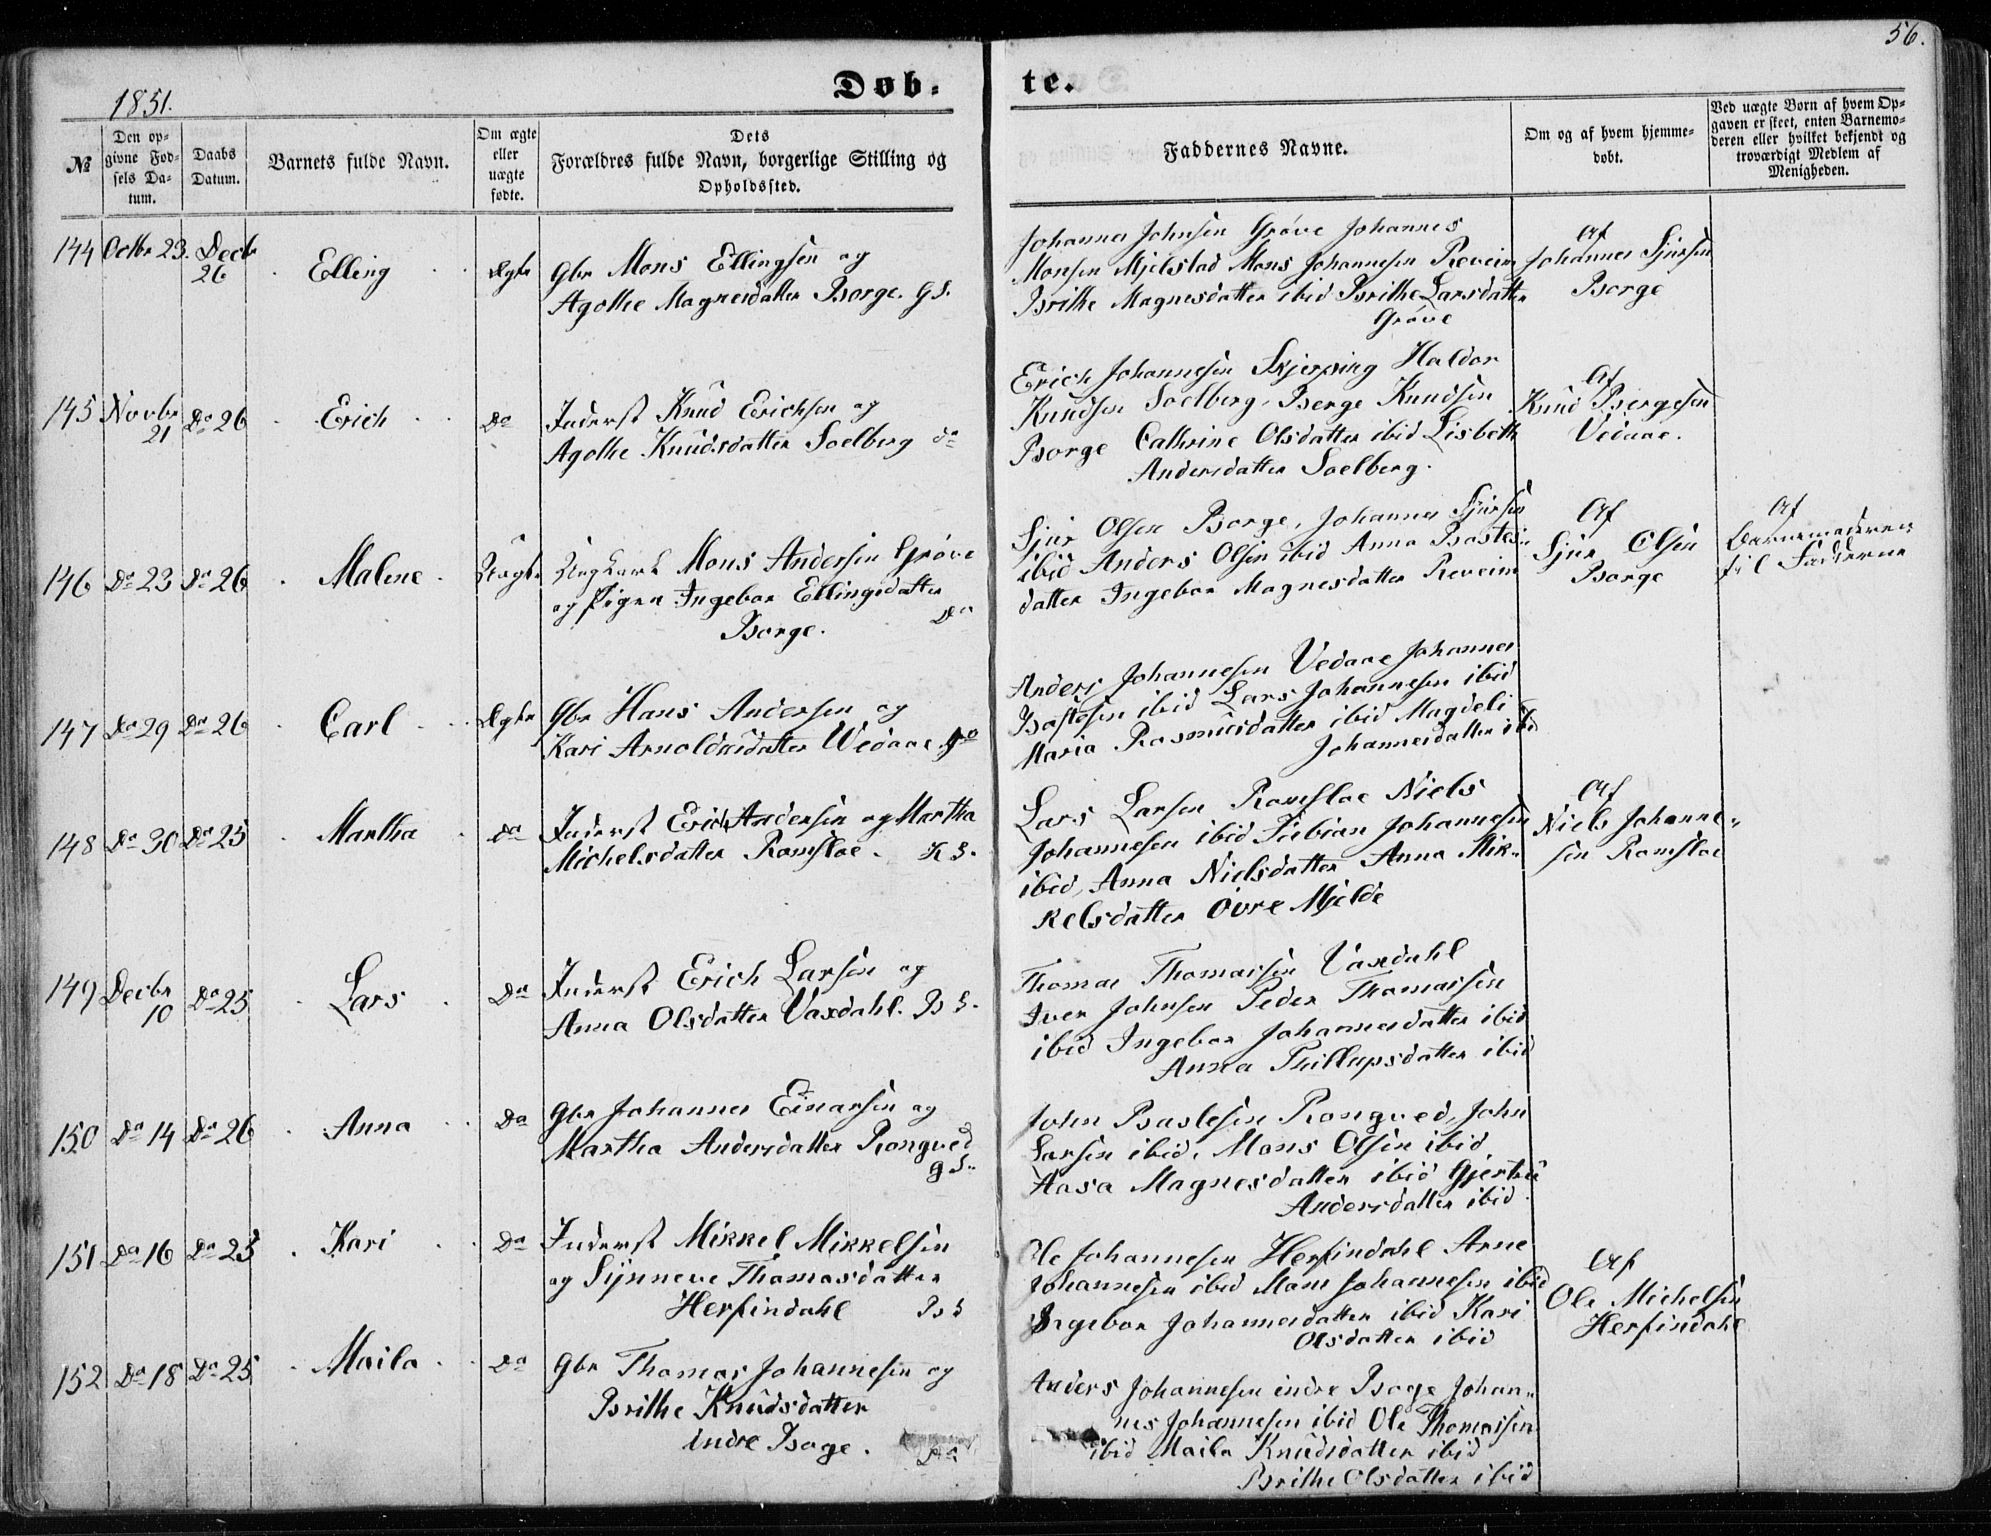 56.
Døb-
te.
1851.
№
Den op-
givne Fød-
sels Da-
tum.
Daabs
Datum.
Barnets fulde Navn.
Om ægte
eller
uægte
fødte.
Dets
Forældres fulde Navn, borgerlige Stilling og
Opholdssted.
Faddernes Navne.
Om og af hvem hjemme-
døbt.
Ved uægte Børn af hvem Op-
gaven er skeet, enten Barnemo-
deren eller hvilket bekjendt og
troværdigt Medlem af
Menigheden.
144 Octbr 23. Decbr
26
Elling
Ægte
Gbr Mons Ellingsen og
Agothe Magnesdatter Borge. G S.
Johannes Johnsen Grøve Johannes
Monsen Mjelstad Mons Johannesen Reveim
Brithe Magnesdatter ibid Brithe Larsdatter
Grøve
Af
Johannes Sjursen
Borge
145 Novbr
21
Do 26
Erich
Do
Inderst Knud Erichsen og
Agothe Knudsdatter Soelberg do
Erich Johannesen Skjerping Haldor
Knudsen Soelberg, Berge Knudsen
Borge Cathrine Olsdatter ibid Lisbeth
Andersdatter Soelberg.
Af
Knud Bergesen
Vedaae.
146 Do 23 Do 26
Malene
Uægte
Ungkarl Mons Andersen Grøve
og Pigen Ingebor Ellingsdatter
Borge. Do
Sjur Olsen Borge, Johannes Sjursen
ibid Anders Olsen ibid Anna Bastes-
datter Ingebor Magnesdatter Reveim
Af
Sjur Olsen
Borge
Af
Barnemoderen
til Fadderne
147 Do 29 Do 26
Carl
Ægte
Gbr Hans Andersen og
Kari Arnoldusdatter Wedaae Do
Anders Johannesen Vedaae Johannes
Bastesen ibid Lars Johannesen ibid
Maria Rasmusdatter ibid Magdeli
Johannesdatter ibid
148 Do 30 Do 25
Martha
Do
Inderst Erich Andersen og Martha
Michelsdatter Romsloe. K S.
Lars Larsen Romsloe Niels
Johannesen ibid Fabian Johannesen
ibid, Anna Nielsdatter Anna Mik-
kelsdatter Øvre Mjelde
Af
Niels Johanne-
sen Romsloe
149 Decbr
10
Do 25
Lars
Do
Inderst Erich Larsen og
Anna Olsdatter Vaxdahl. B S.
Thomas Thomassen Vaxdahl
Iver Johnsen Peder Thomassen
ibid Ingebor Johannesdatter ibid
Anna Phillupsdatter ibid
150 Do 14 Do 26
Anna
Do
Gbr Johannes Einarsen og
Martha Andersdatter Rongved
G S.
John Bastesen Rongved, John
Larsen ibid, Mons Olsen ibid
Aasa Magnesdatter ibid Gjertrü
Andersdatter ibid
151 Do 16 Do 25
Kari
Do
Inderst Mikkel Mikkelsen
og Synneve Thomasdatter
Herfindahl B S
Ole Johannesen Herfindahl Arne
Johannesen ibid Mons Johannesen ibid
Ingebor Johannesdatter ibid Kari
Olsdatter ibid
Af
Ole Michelsen
Herfindahl
152 Do 18 Do 25
Maila
Do
Gbr Thomas Johannesen og
Brithe Knudsdatter
indre Boge. Do
Anders Johannesen indre Boge Johan-
nes Johannesen ibid Ole Thomassen
ibid Maila Knudsdatter ibid
Brithe Olsdatter ibid